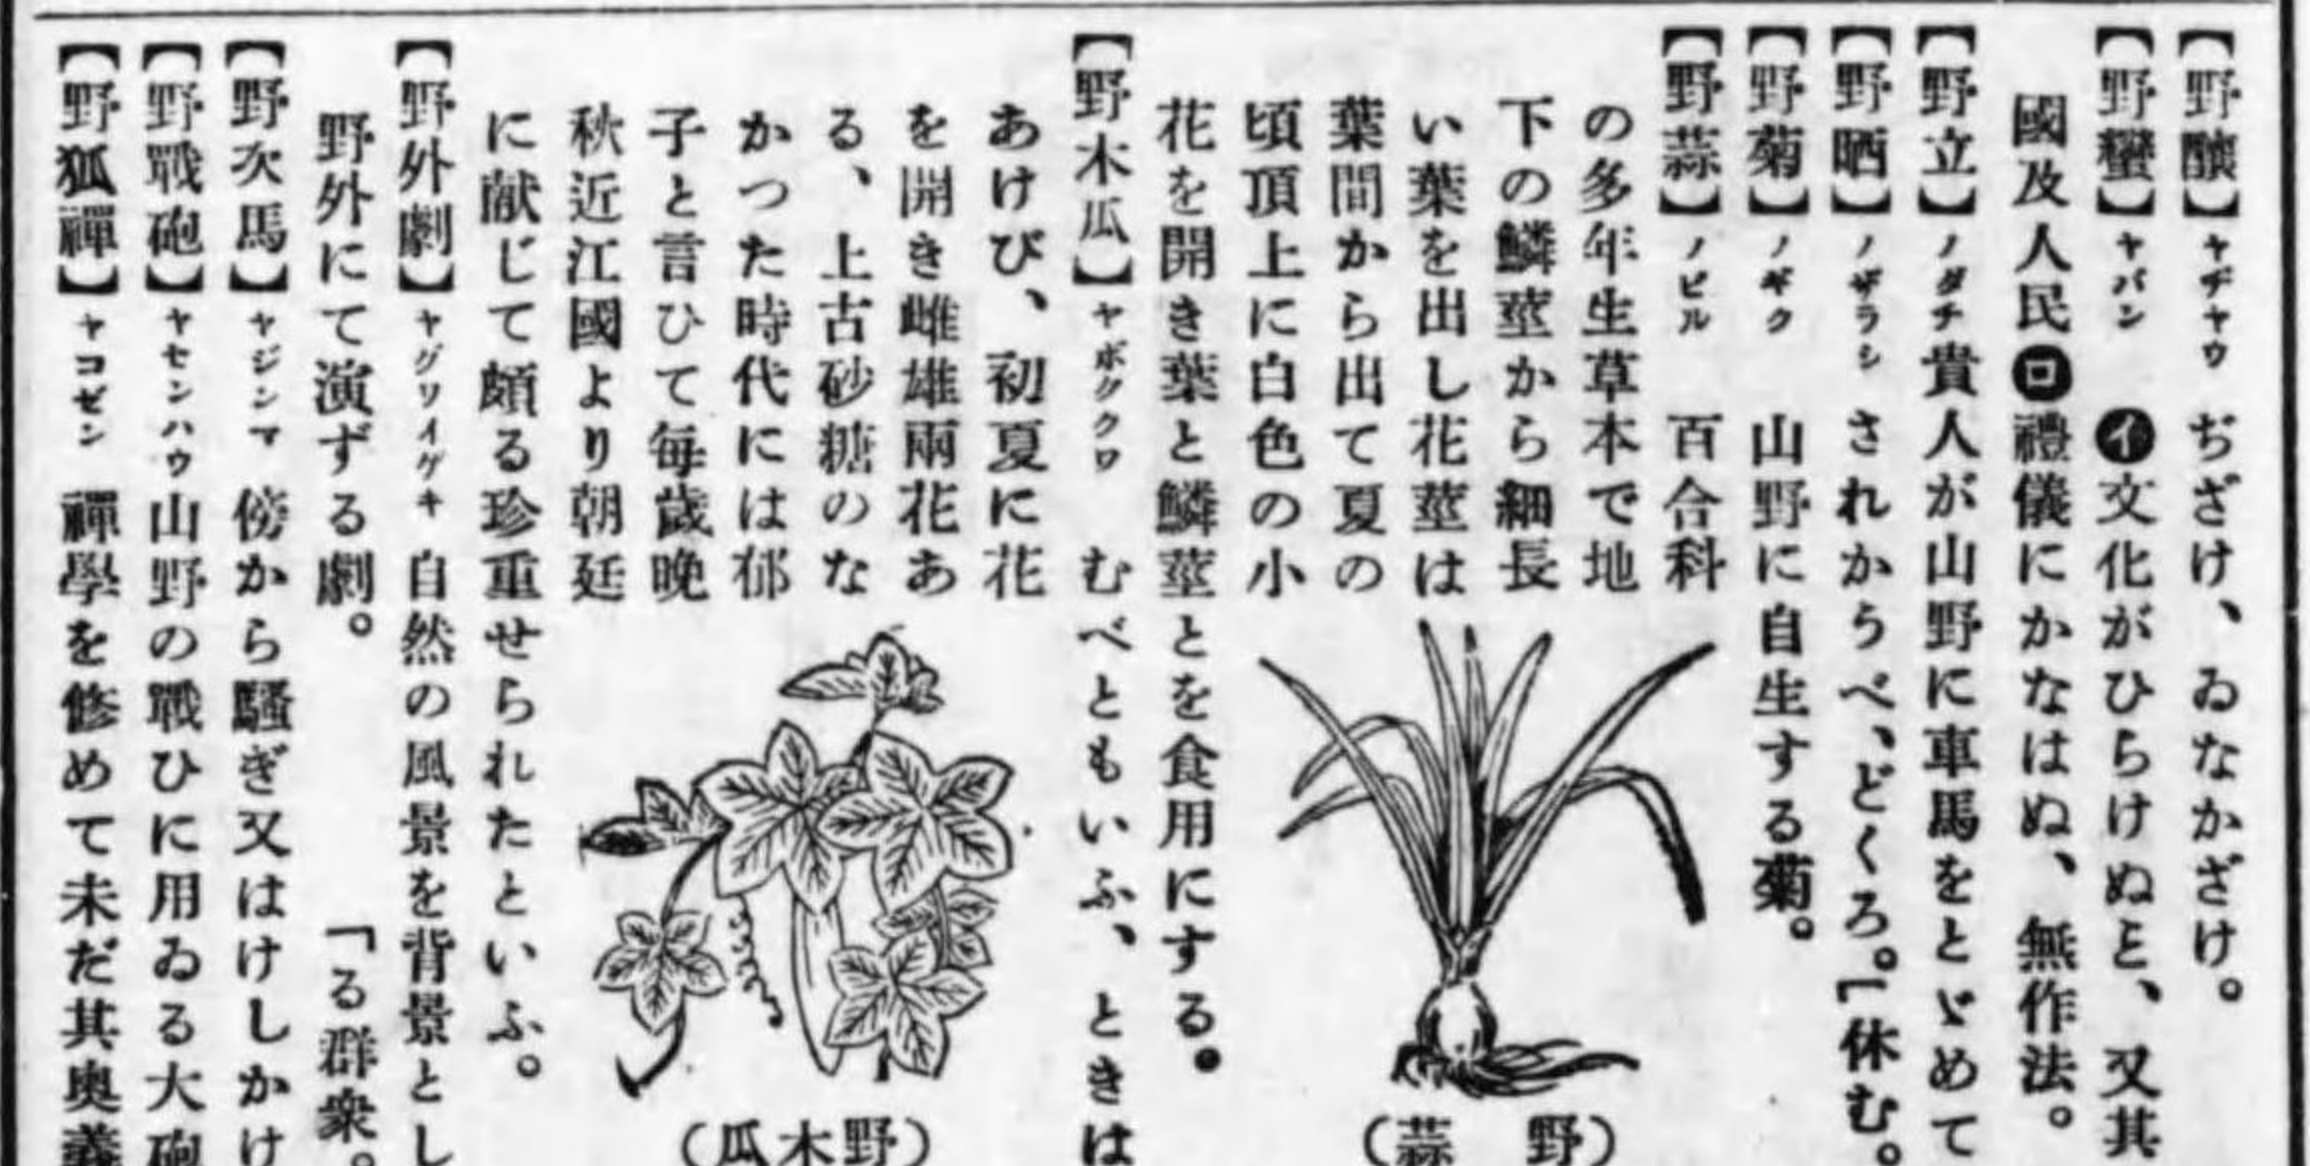 【野釀】ヤヂヤウ ぢざけ、ゐなかざけ。
【野蠻】ヤバン ㋑文化がひらけぬこと、又其
國及人民㋺禮儀にかなはぬ、無作法。
【野立】ノダチ 貴人が山野に車馬をとゞめて
【野晒】ノザラシ されかうべ、どくろ。[休む。
【野菊】ノギク 山野に自生する菊。
【野蒜】ノビル 百合科
の多年生草本で地
下の鱗莖から細長
い葉を出し花莖は
葉間から出て夏の
頃頂上に白色の小
花を開き葉と鱗莖とを食用にする。
(野 蒜)
【野木瓜】ヤボククワ むべともいふ、ときは
あけび、初夏に花
を開き雌雄兩花あ
る、上古砂糖のな
かつた時代には郁
子と言ひて每歲晩
秋近江國より朝廷
に献じて頗る珍重せられたといふ。
(野木瓜)
【野外劇】ヤグワイゲキ 自然の風景を背景とし
野外にて演ずる劇。 「る群衆。
【野次馬】ヤジンマ 傍から騷ぎ又はけしかけ
【野戰砲】ヤセンハウ 山野の戰ひに用ゐる大砲
【野狐禪】ヤコゼン 禪學を修めて未だ其奥義